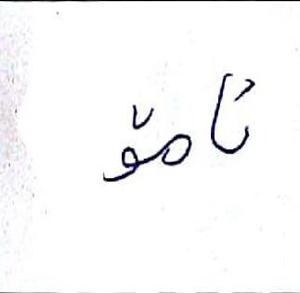 نامۆ